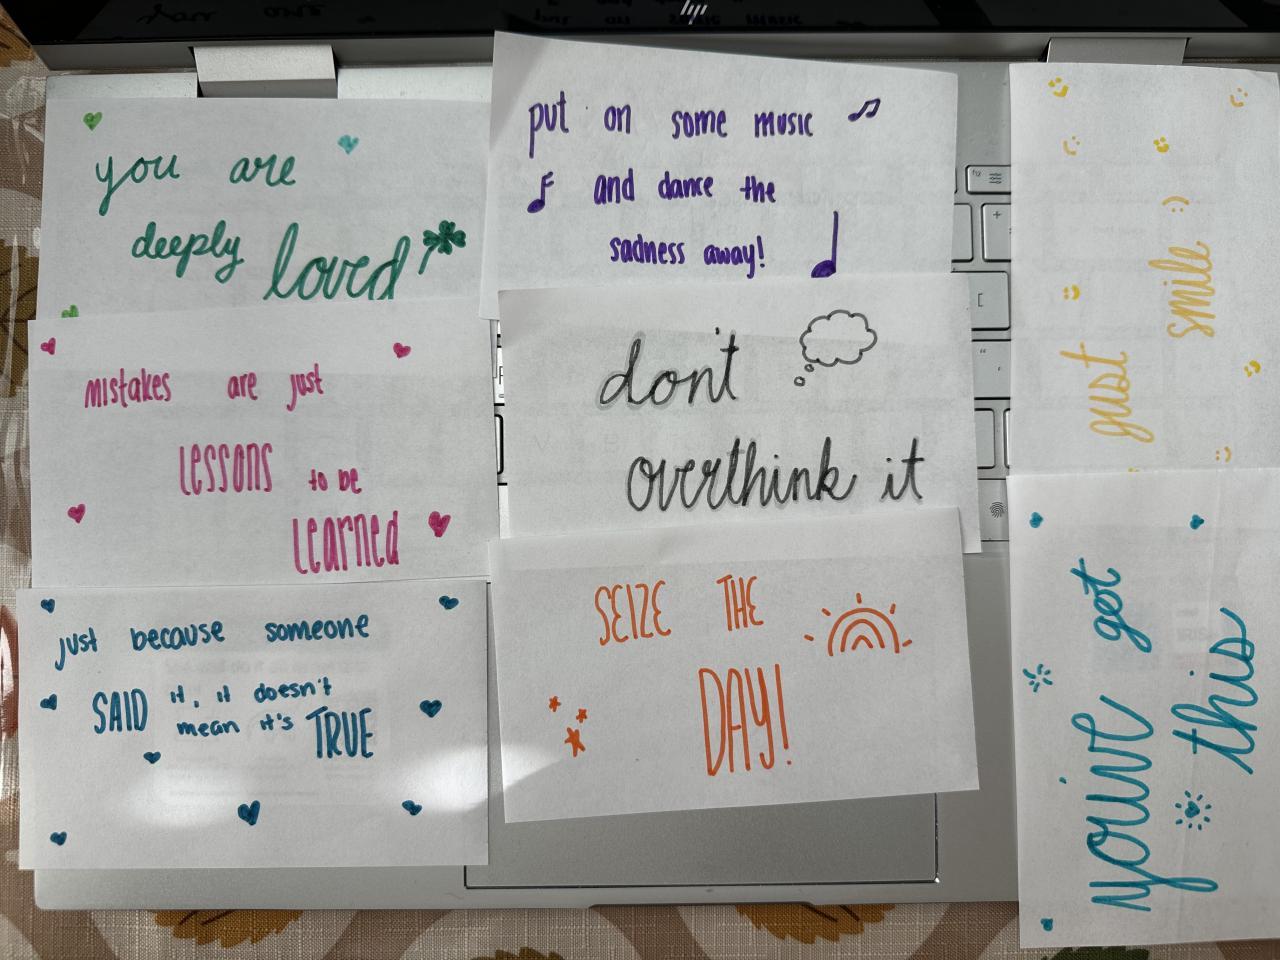 hp
you are
deeply loved
put on some music
and dance the
sadness away!
just smile :)
mistakes are just
LESSONS to be
LEARNED
don't
overthink it
just because someone
SAID it, it doesn't
mean it's TRUE
SEIZE THE
DAY!
you've got
this